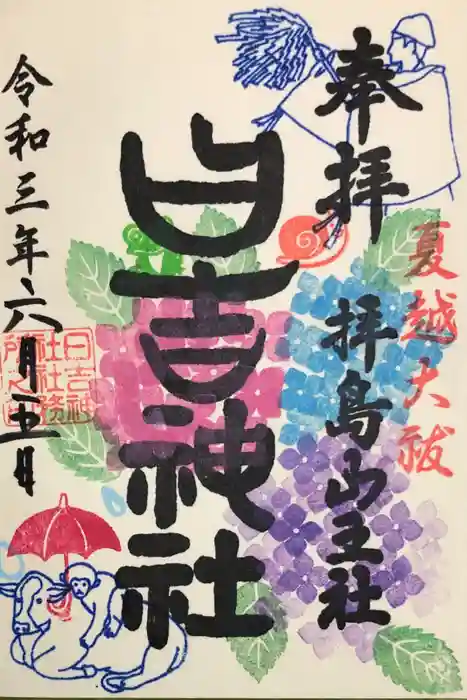 奉拝
夏越大祓
拝島山王社
日吉神社
令和三年六月五日
日吉神
社社務
所之印